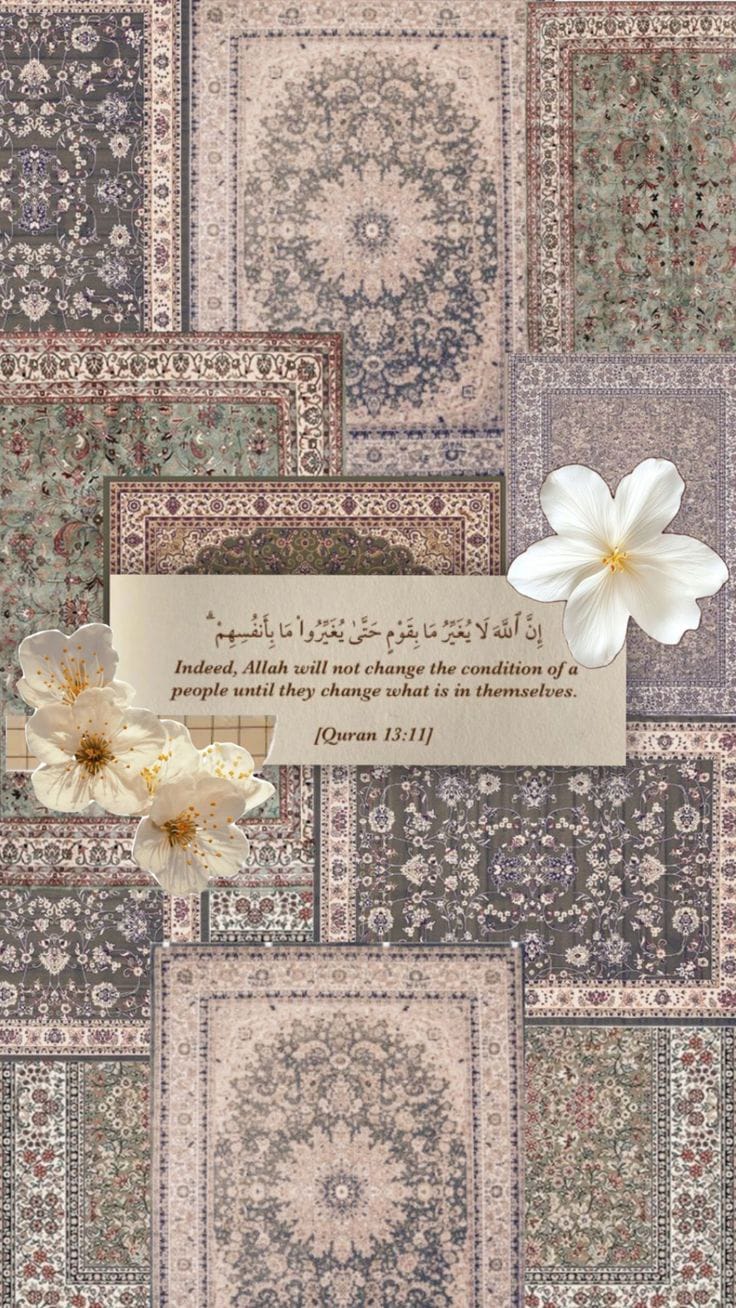 إِنَّ ٱللَّهَ لَا يُغَيِّرُ مَا بِقَوْمٍ حَتَّىٰ يُغَيِّرُوا۟ مَا بِأَنفُسِهِمْ ۗ
Indeed, Allah will not change the condition of a
people until they change what is in themselves.
[Quran 13:11]